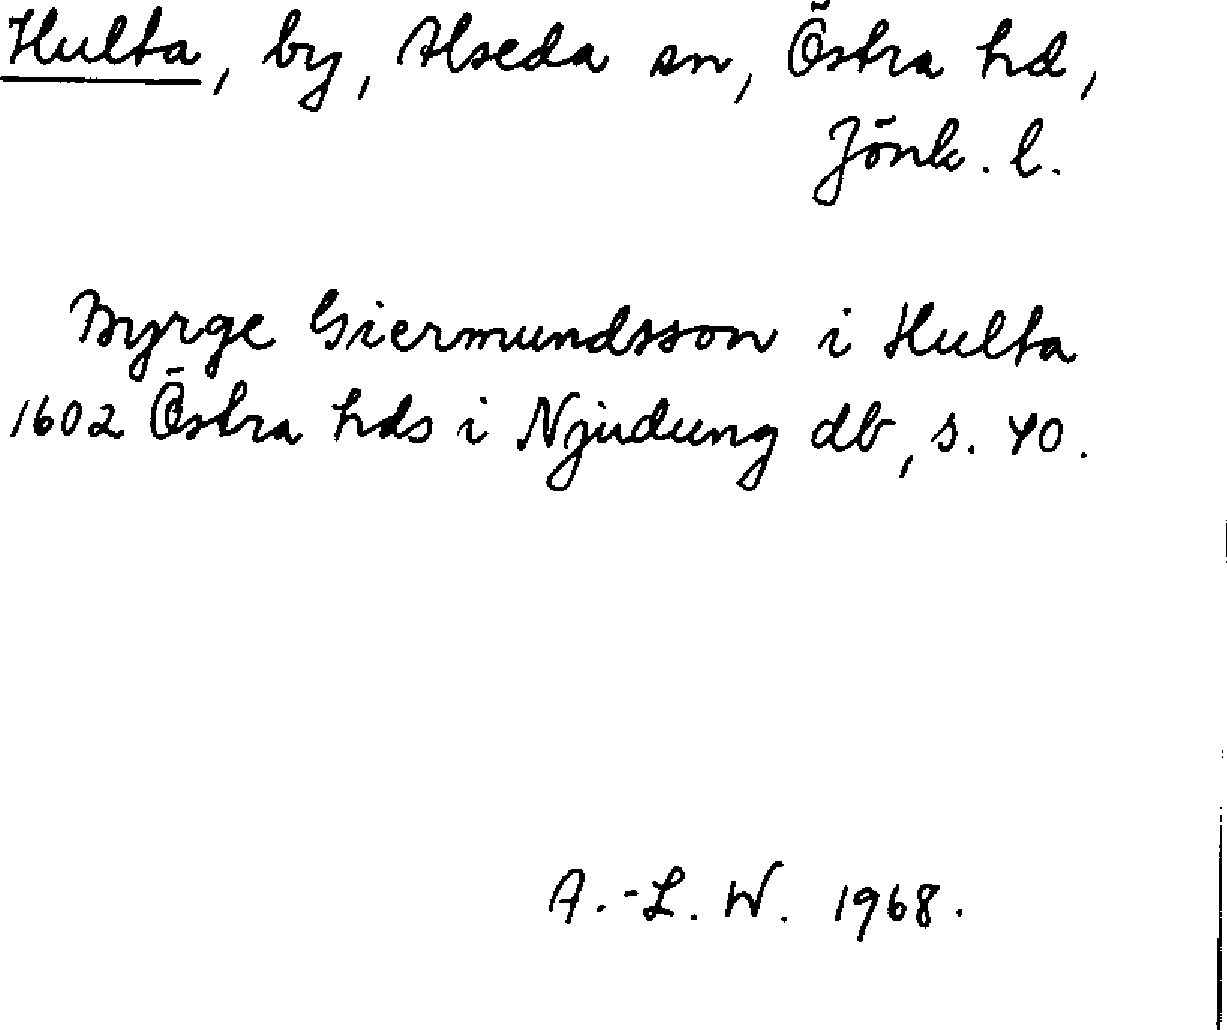 Hulta, by, Alseda sn, Östra hd,
Jönk. l.
Byrge Giermundsson i Hulta
1602 Östra hds i Njudung db, s. 40.
A.-L. W. 1968.